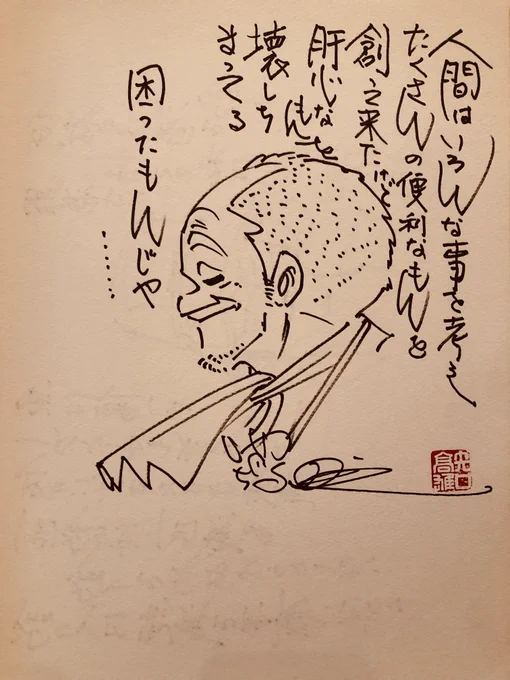 人間はいろんな事を考え、
たくさんの便利なもんを
創って来たけど
肝心なもんを
壊しち
まってる
困ったもんじゃ
……